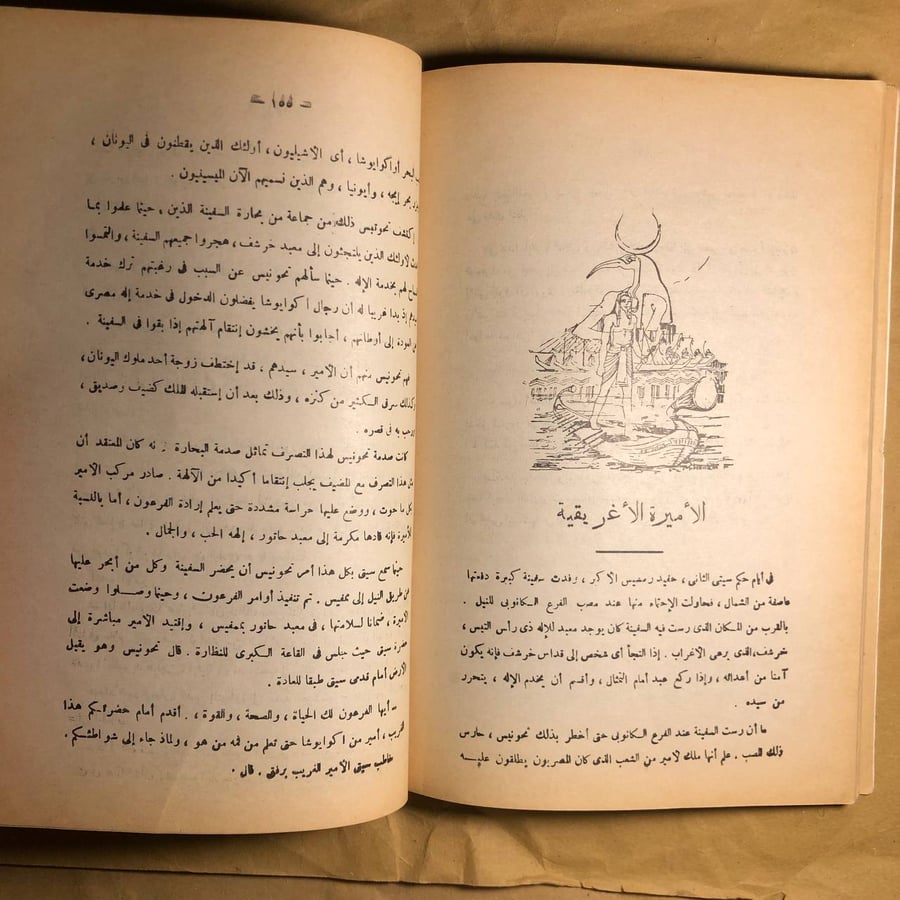 الأميرة الأغريقية
فى أيام حكم سيتى الثانى ، حفيد رمسيس الأكبر ، وفدت سفينة كبيرة دفعتها
عاصفة من الشمال ، فحاولت الإحتماء منها عند مصب الفرع الكانوبى للنيل .
بالقرب من المكان الذى رست فيه السفينة كان يوجد معبد للاله ذى رأس التيس ،
خرشف ، الذى يرعى الاغراب . إذا التجأ أى شخص إلى قداس خرشف فإنه يكون
آمنا من أعدائه ، وإذا ركع عبد أمام التمثال ، وأقسم أن يخدم الإله ، يتحرر
من سيده .
ما أن رست السفينة عند الفرع الكانوبى حتى أخطر بذلك تحونيس ، حارس
ذلك المصب . علم أنها ملك لامير من الشعب الذى كان المصريون يطلقون عليه
— ١٥٥ —
البحر أو اكوايوشا ، أى الاشيليون ، أولئك الذين يقطنون فى اليونان ،
بحر إيجه ، وأيونيا ، وهم الذين نسميهم الآن الميسينيون .
إكتشف تحونيس ذلك من جماعة من بحارة السفينة الذين ، حينما علموا بما
لاولئك الذين يلتجئون إلى معبد خرشف ، هجروا جميعهم السفينة ، والتمسوا
لهم بخدمة الإله . حينما سألهم تحونيس عن السبب فى رغبتهم ترك خدمة
إذ بدا غريبا له أن رجال اكوايوشا يفضلون الدخول فى خدمة إله مصرى
العودة إلى أوطانهم ، أجابوا بأنهم يخشون إنتقام آلهتهم إذا بقوا فى السفينة .
تحونيس منهم أن الأمير ، سيدهم ، قد إختطف زوجة أحد ملوك اليونان ،
وكذلك سرق الكثير من كنزه ، وذلك بعد أن إستقبله الملك كضيف وصديق ،
به فى قصره .
كانت صدمة تحونيس لهذا التصرف تماثل صدمة البحارة كان المعتقد أن
هذا التصرف مع المضيف يجلب إنتقاما أكيدا من الآلهة . صادر مركب الأمير
بكل ما حوت ، ووضع عليها حراسة مشددة حتى يعلم إرادة الفرعون ، أما بالنسبة
للأميرة فإنه قادها مكرمة إلى معبد حاتور ، إلهه الحب ، والجمال .
حينما سمع سيتى بكل هذا أمر تحونيس أن يحضر السفينة وكل من أبحر عليها
عن طريق النيل إلى ممفيس . تم تنفيذ أوامر الفرعون ، وحينما وصلوا وضعت
الأميرة ، ضمانا لسلامتها ، فى معبد حاتور بممفيس ، وإقتيد الأمير مباشرة إلى
حضرة سيتى حيث جلس فى القاعة الكبرى للنظارة . قال تحونيس وهو يقبل
الأرض أمام قدمى سيتى طبقا للعادة .
— أيها الفرعون لك الحياة ، والصحة ، والقوة ، . أقدم أمام حضرتكم هذا
الغريب ، أمير من اكوايوشا حتى تعلم من فمه من هو ، ولماذ جاء إلى شواطئكم .
خاطب سيتى الأمير الغريب برفق . قال .